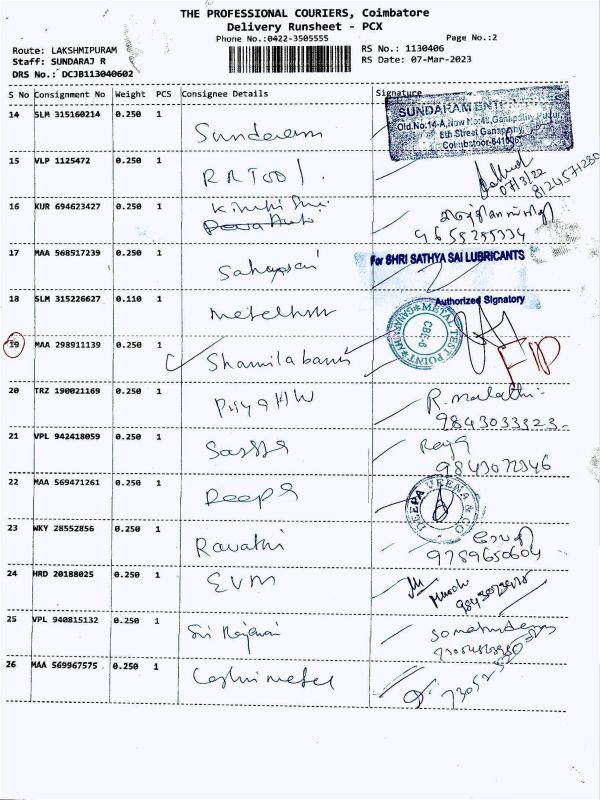 THE PROFESSIONAL COURIERS, Coimbatore
Delivery Runsheet - PCX
Phone No.:0422-3505555
Page No.:2
Route: LAKSHMIPURAM
RS No.: 1130406
Staff: SUNDARAJ R
RS Date: 07-Mar-2023
DRS No.: DCJB113040602
S No Consignment No Weight PCS Consignee Details Signature
14 SLM 315160214 0.250 1 Sundaram
SUNDARAM ENTERPRISES
Old.No:14-A,New No:40,Ganapathy Pudur
6th Street Ganapathy,
Coimbatoor-641006
15 VLP 1125472 0.250 1
07/3/22
8124571230
16 KUR 694623427 0.250 1
9655255334
17 MAA 568517239 0.250 1 Sahayasai
For SHRI SATHYA SAI LUBRICANTS
Authorized Signatory
18 SLM 315226627 0.110 1
METAL TEST POINT
CBE-6
19 MAA 298911139 0.250 1 Shamilabanu
20 TRZ 190021169 0.250 1 Priya HW
R. Malathi
9843033323
21 VPL 942418059 0.250 1 Sassa
Raja
9843072346
22 MAA 569471261 0.250 1 Deepa
DEEPA VEENA & CO
23 WKY 28552856 0.250 1 Ravathi
9789650604
24 HRD 20188025 0.250 1 EVM
25 VPL 940815132 0.250 1
26 MAA 569967575 0.250 1